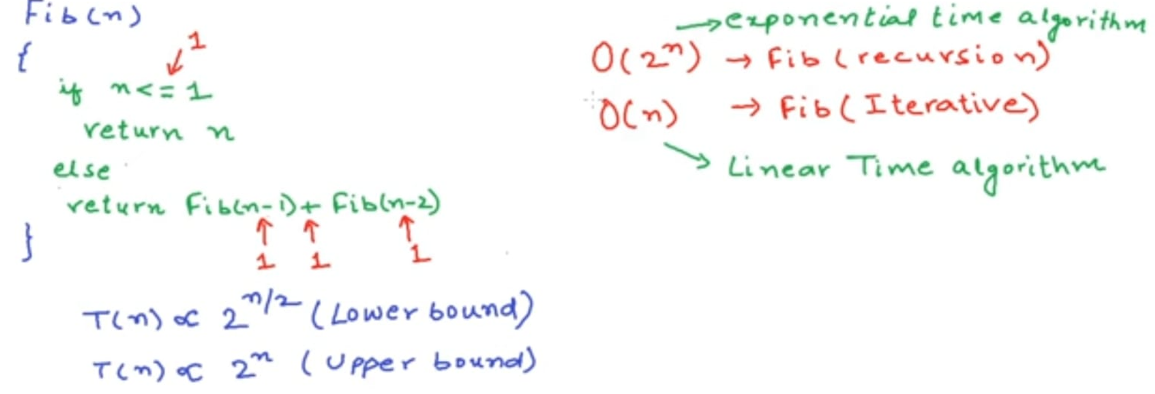 Fib(n)
{
1
if n<=1
return n
else
return Fib(n-1)+ Fib(n-2)
1 1 1
}
T(n) ∝ 2^n/2 (Lower bound)
T(n) ∝ 2^n (Upper bound)
→ exponential time algorithm
O(2^n) → Fib (recursion)
O(n) → Fib (Iterative)
→ Linear Time algorithm